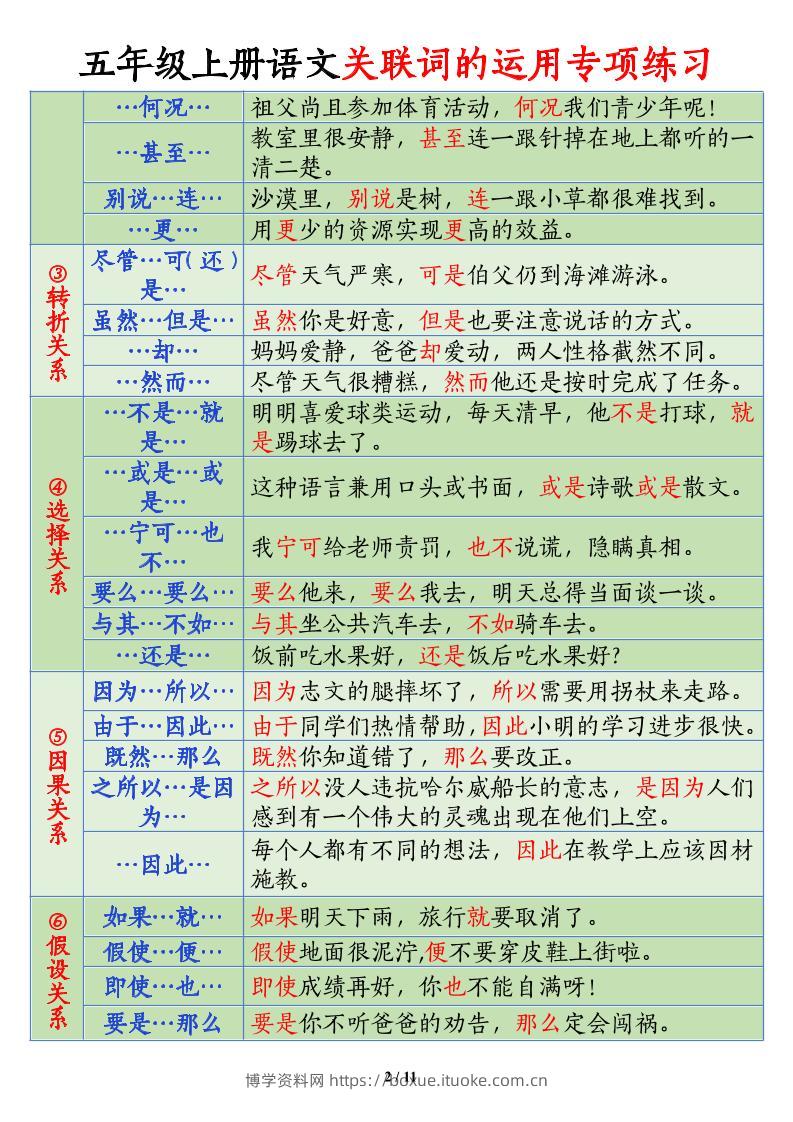 五年级上册语文关联词的运用专项练习
…何况… 祖父尚且参加体育活动，何况我们青少年呢！
…甚至… 教室里很安静，甚至连一跟针掉在地上都听的一
清二楚。
别说…连… 沙漠里，别说是树，连一跟小草都很难找到。
…更… 用更少的资源实现更高的效益。
③转折关系
尽管…可（还）
是… 尽管天气严寒，可是伯父仍到海滩游泳。
虽然…但是… 虽然你是好意，但是也要注意说话的方式。
…却… 妈妈爱静，爸爸却爱动，两人性格截然不同。
…然而… 尽管天气很糟糕，然而他还是按时完成了任务。
④选择关系
…不是…就
是… 明明喜爱球类运动，每天清早，他不是打球，就
是踢球去了。
…或是…或
是… 这种语言兼用口头或书面，或是诗歌或是散文。
…宁可…也
不… 我宁可给老师责罚，也不说谎，隐瞒真相。
要么…要么… 要么他来，要么我去，明天总得当面谈一谈。
与其…不如… 与其坐公共汽车去，不如骑车去。
…还是… 饭前吃水果好，还是饭后吃水果好?
⑤因果关系
因为…所以… 因为志文的腿摔坏了，所以需要用拐杖来走路。
由于…因此… 由于同学们热情帮助,因此小明的学习进步很快。
既然…那么 既然你知道错了，那么要改正。
之所以…是因
为… 之所以没人违抗哈尔威船长的意志，是因为人们
感到有一个伟大的灵魂出现在他们上空。
…因此… 每个人都有不同的想法，因此在教学上应该因材
施教。
⑥假设关系
如果…就… 如果明天下雨，旅行就要取消了。
假使…便… 假使地面很泥泞,便不要穿皮鞋上街啦。
即使…也… 即使成绩再好，你也不能自满呀！
要是…那么 要是你不听爸爸的劝告，那么定会闯祸。
2 / 11
博学资料网 https://boxue.ituoke.com.cn